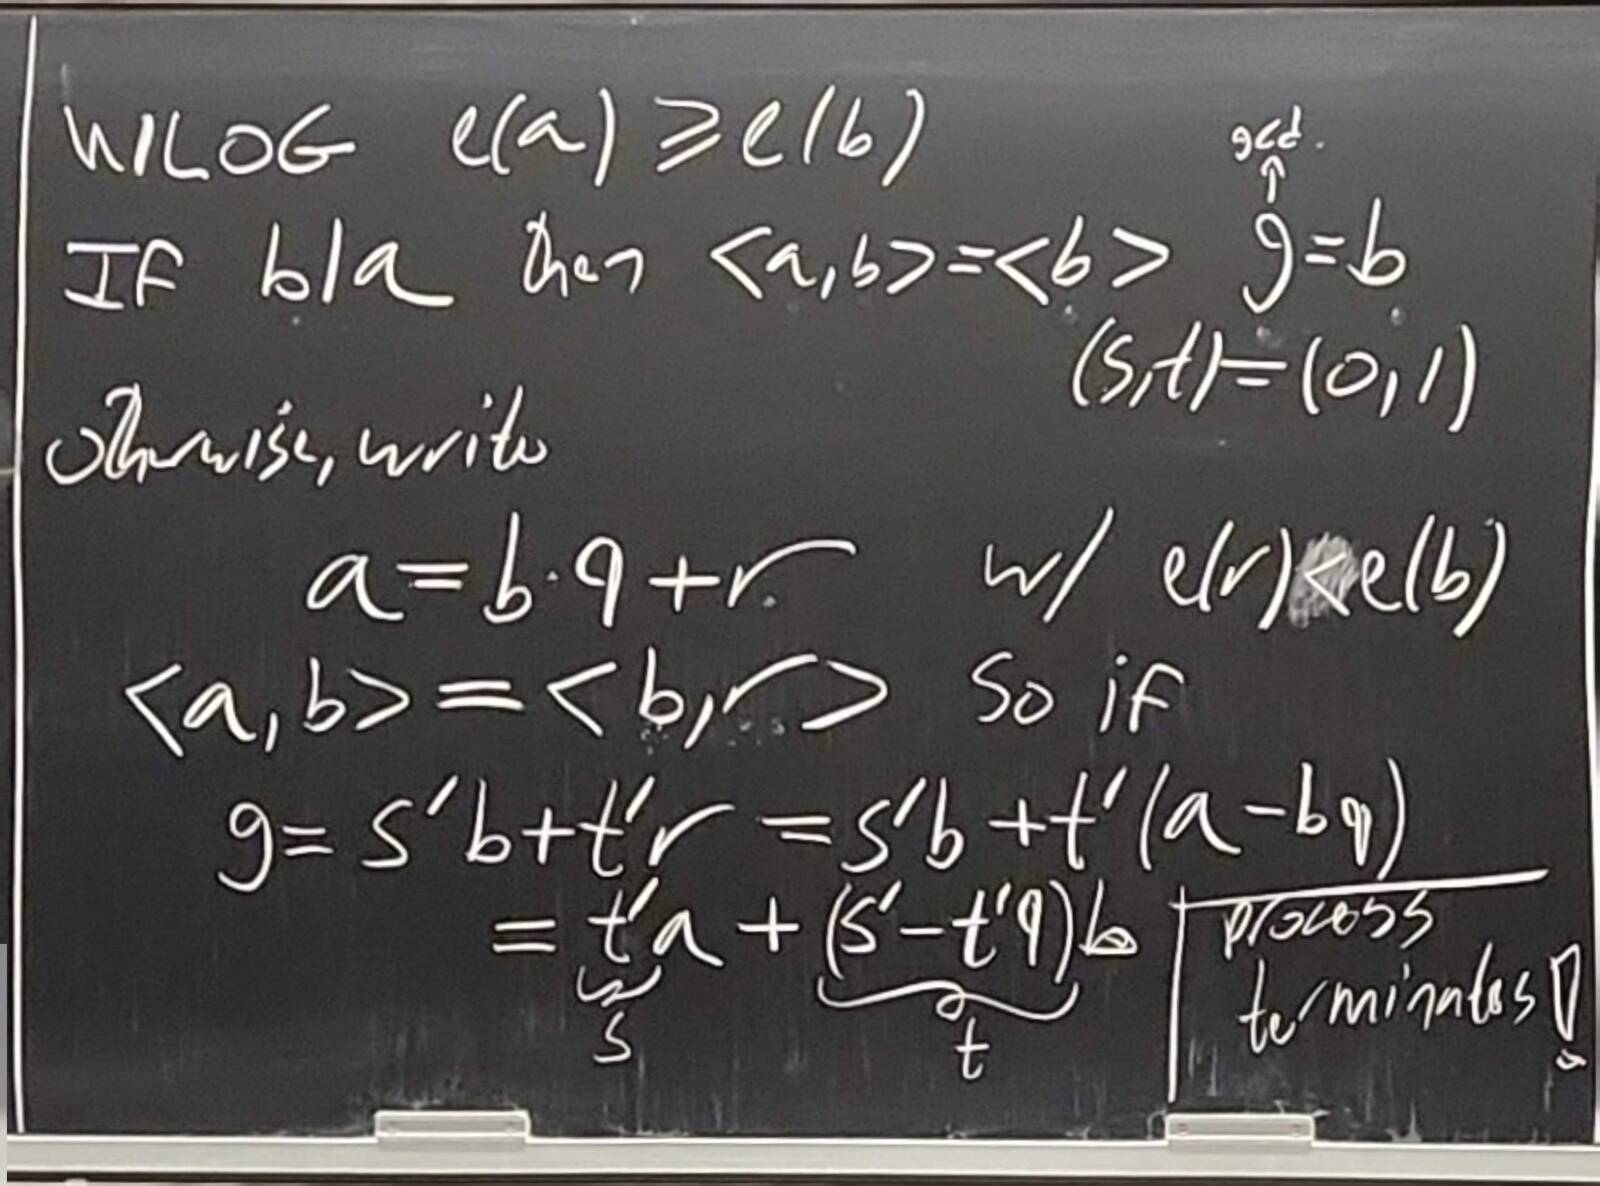 WLOG e(a) ⩾ e(b)
gcd.
↑
If b|a then <a,b>=<b> g=b
(s,t)=(0,1)
otherwise, write
a=b·q+r w/ e(r)<e(b)
<a,b>=<b,r> so if
g=s'b+t'r =s'b+t'(a-bq)
=t'a+(s'-t'q)b
s t
process
terminates!